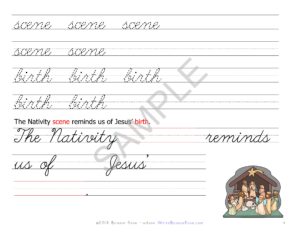 scene scene scene
scene scene
birth birth birth
birth birth
The Nativity scene reminds us of Jesus' birth.
The Nativity reminds
us of Jesus'
.
SAMPLE